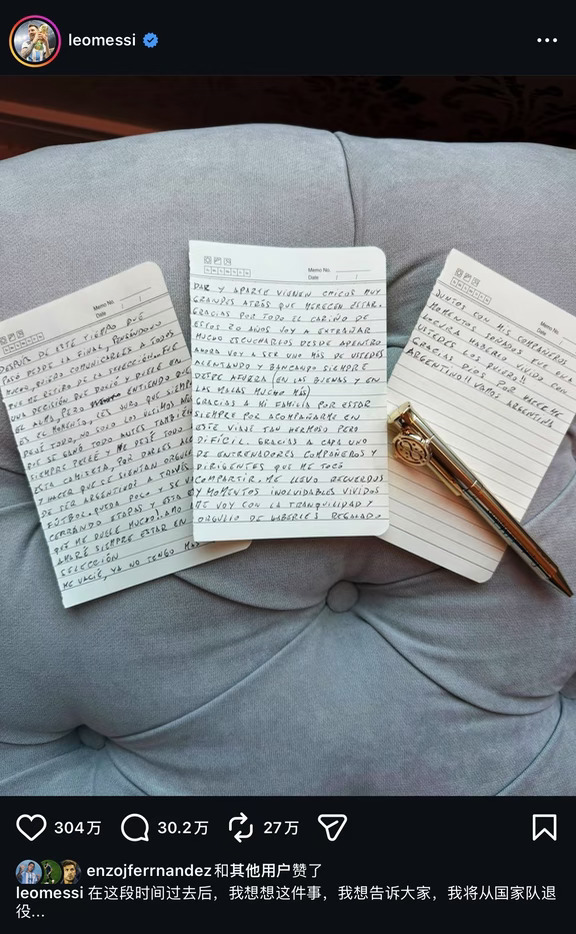 leomessi
Memo No.
Date / /
DESPUES DE ESTE TIEMPO QUE
PASÓ DESDE LA FINAL, PENSANDOLO
MUCHO, QUIERO COMUNICARLES A TODOS
QUE ME RETIRO DE LA SELECCIÓN. FUE
UNA DECISIÓN QUE DOLIÓ Y DUELE EN
EL ALMA PERO ENTIENDO QUE
ES EL MOMENTO. LES JURO QUE SIEMPRE
DEJÉ TODO, NO SOLO LOS ULTIMOS AÑOS
QUE SE GANÓ TODO ANTES TAMBIÉN
SIEMPRE PELEÉ Y ME DEJÉ TODO
ESTA CAMISETA, POR DARLES
Y HACER QUE SE SIENTAN
DE SER ARGENTINOS A TRAVÉS
FÚTBOL. QUEDA POCO Y SE
CERRANDO ETAPAS Y ESTA
QUE ME DUELE MUCHO. AMO
AMARÉ SIEMPRE ESTAR EN
SELECCIÓN
ME VACIÉ, YA NO TENGO
Memo No.
Date / /
DAR Y APARTE VIENEN CHICOS MUY
GRANDES ATRÁS QUE MERECEN ESTAR.
GRACIAS POR TODO EL CARIÑO DE
ESTOS 20 AÑOS VOY A EXTRAÑAR
MUCHO ESCUCHARLOS DESDE ADENTRO
AHORA VOY A SER UNO MÁS DE USTEDES
ALENTANDO Y BANCANDO SIEMPRE
DESDE AFUERA (EN LAS BUENAS Y EN
LAS MALAS MUCHO MÁS)
GRACIAS A MI FAMILIA POR ESTAR
SIEMPRE POR ACOMPAÑARME EN
ESTE VIAJE TAN HERMOSO PERO
DIFICIL. GRACIAS A CADA UNO
DE ENTRENADORES COMPAÑEROS Y
DIRIGENTES QUE ME TOCÓ
COMPARTIR. ME LLEVO RECUERDOS
Y MOMENTOS INOLVIDABLES VIVIDOS
ME VOY CON LA TRANQUILIDAD Y
ORGULLO DE HABERLES REGALADO
Memo No.
Date / /
JUNTOS CON MIS COMPAÑEROS
MOMENTOS SOÑADOS FUE UNA
LOCURA HABERLO VIVIDO CON
USTEDES LOS QUIERO!!
GRACIAS DIOS POR HACERME
ARGENTINO!! VAMOS ARGENTINA
304万 30.2万 27万
enzojferrnandez和其他用户赞了
leomessi 在这段时间过去后，我想想这件事，我想告诉大家，我将从国家队退
役...